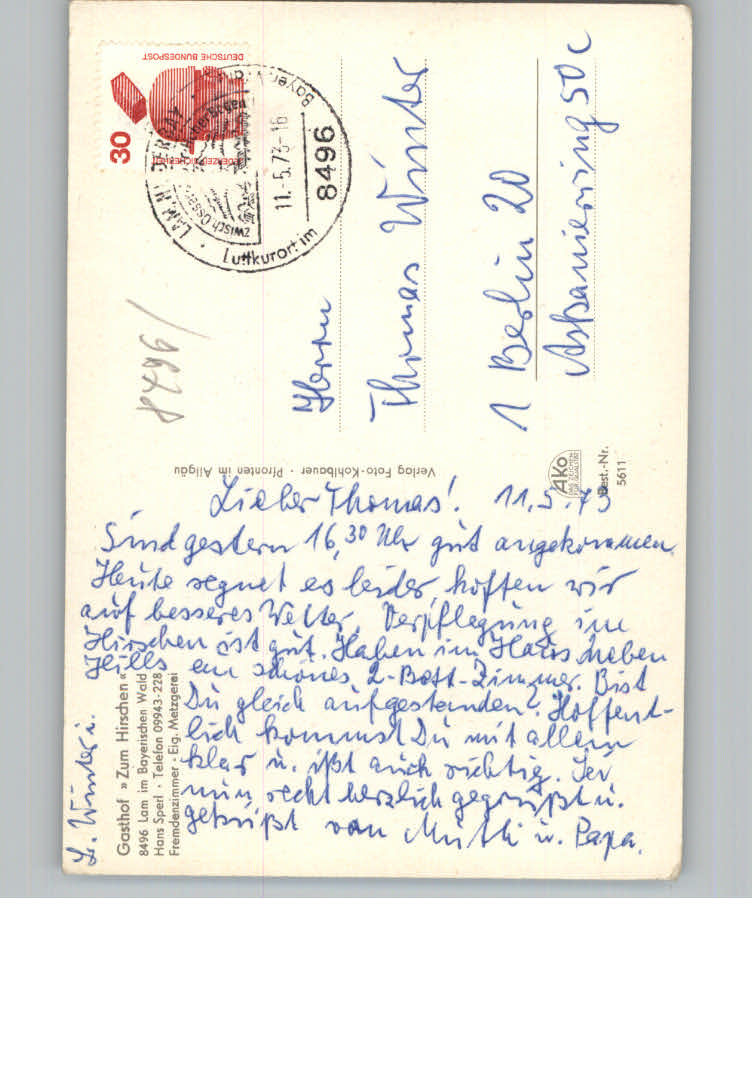 Lieber Thomas! 11.5.73
Sind gestern 16,30 Uhr gut angekommen.
Heute regnet es leider, hoffen wir
auf besseres Wetter. Verpflegung im
Hirschen ist gut. Haben im Haus neben
Hills ein schönes 2-Bett-Zimmer. Bist
Du gleich aufgestanden? Hoffent-
lich kommst Du mit allem
klar u. ißt auch richtig. Sei
nun recht herzlich gegrüßt u.
geküßt von Mutti u. Papa.
Gasthof » Zum Hirschen «
8496 Lam im Bayerischen Wald
Hans Sperl · Telefon 09943-228
Fremdenzimmer · Eig. Metzgerei
Winter
Verlag Foto-Kohlbauer · Pfronten im Allgäu
AKO
DAS ZEICHEN
FÜR QUALITÄT
Best.-Nr.
5611
Herrn
Thomas Winter
1 Berlin 20
Askanierring 50c
8496/
30
DEUTSCHE BUNDESPOST
JEDERZEIT SICHERHEIT
8496
11.-5.73-16
Luftkurort im
Bayer. Wald
LAM, NIEDERBAY
zwisch. Osser